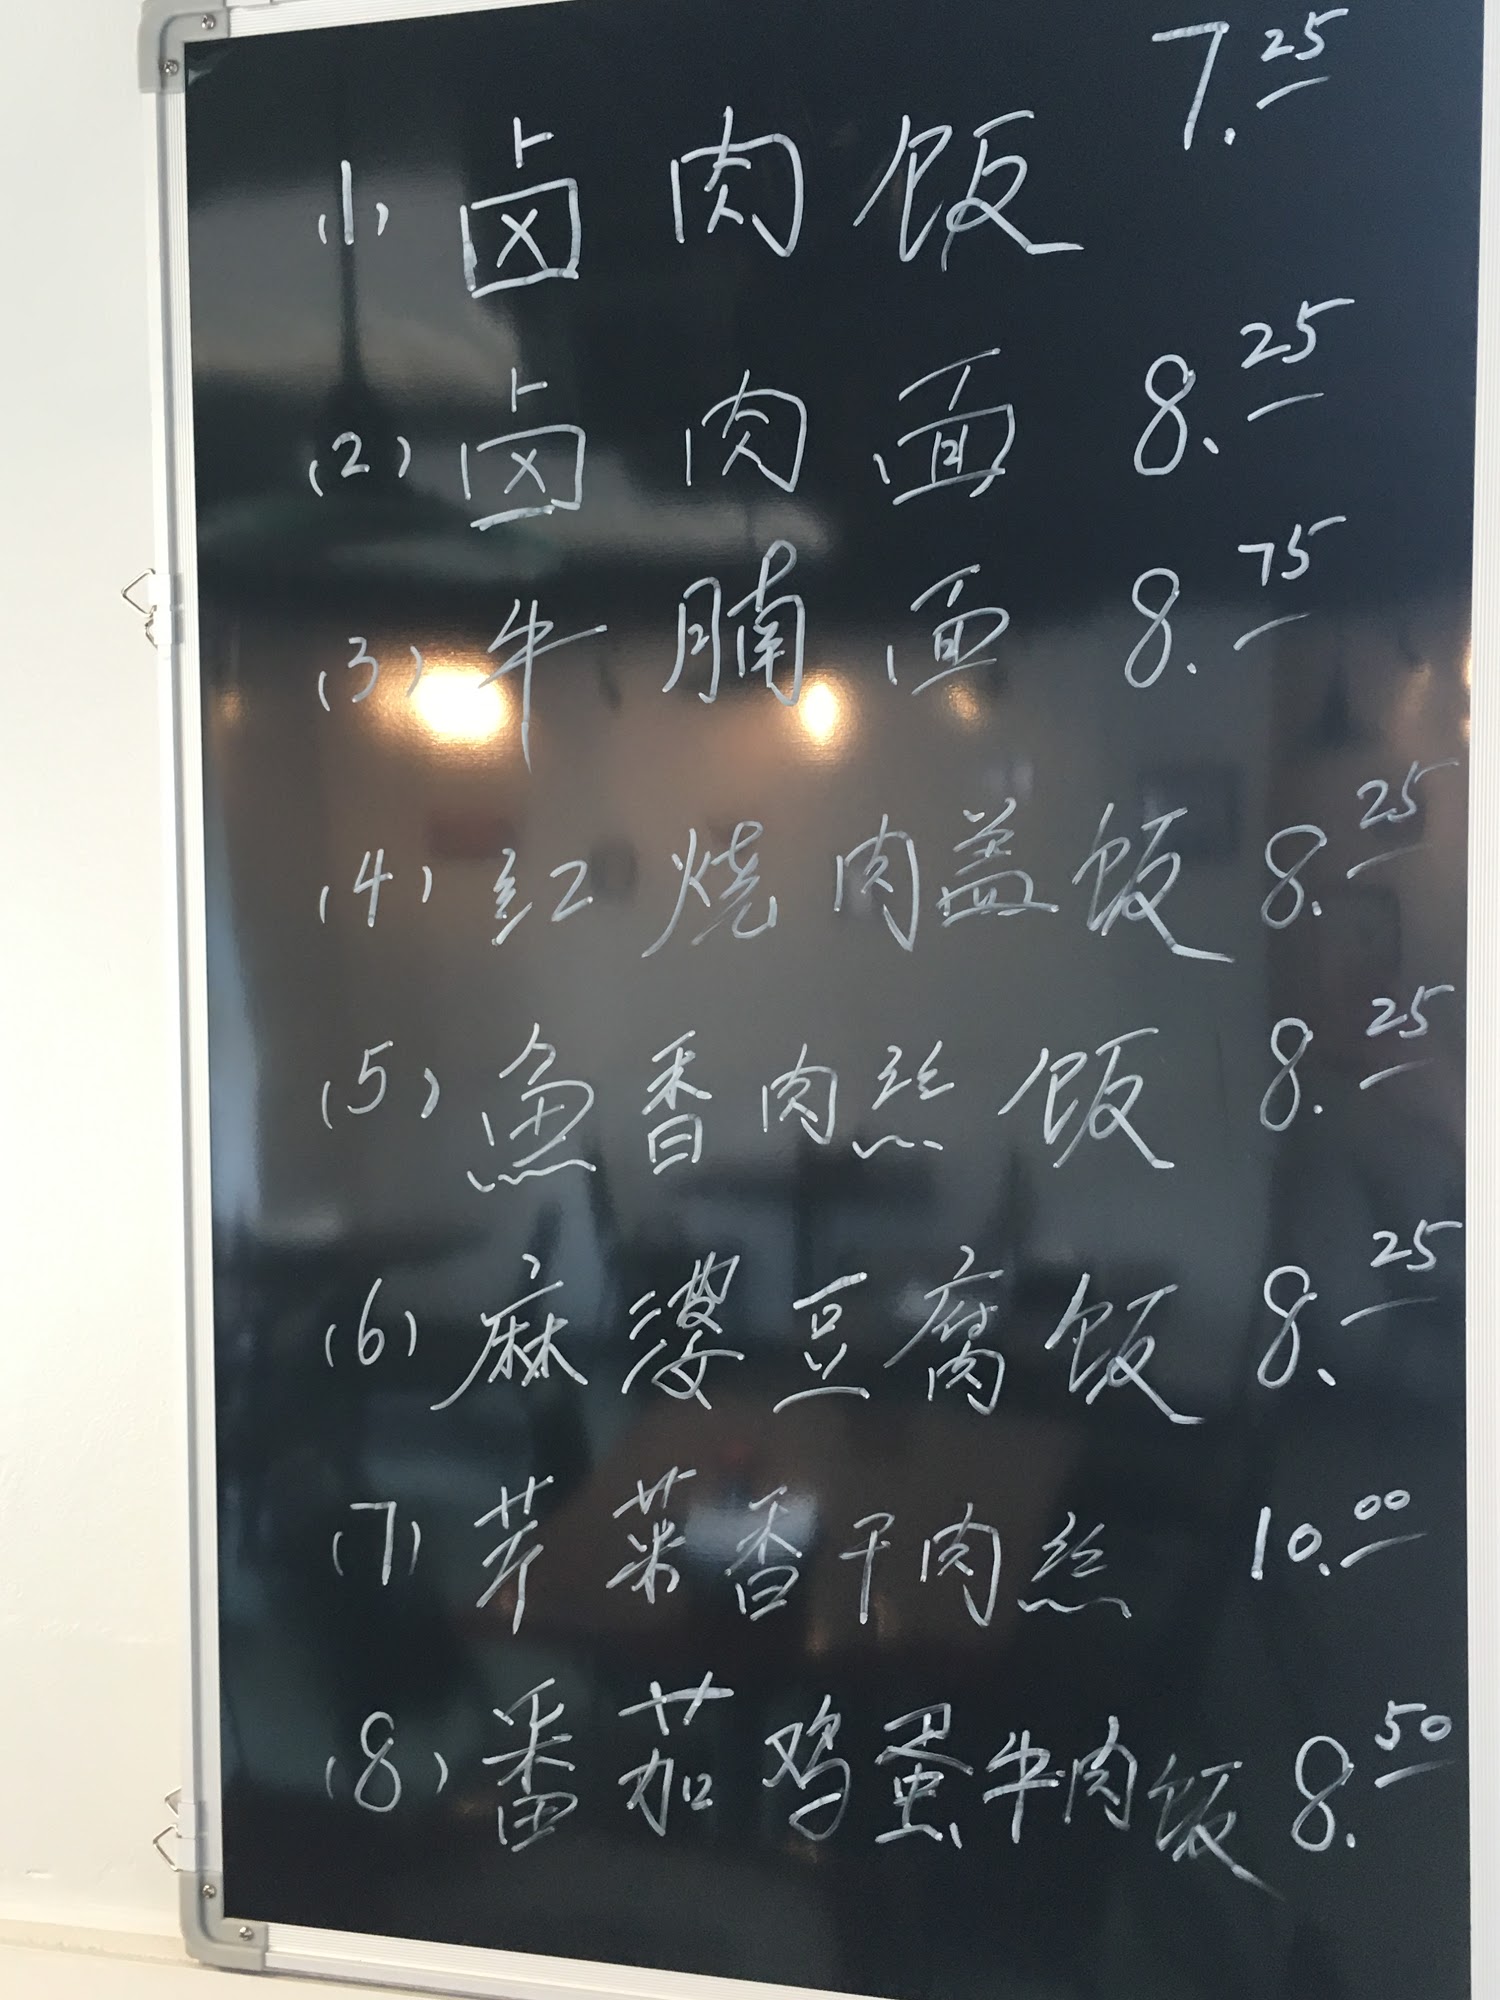 (1) 卤肉饭 7.25
(2) 卤肉面 8.25
(3) 牛腩面 8.75
(4) 红烧肉盖饭 8.25
(5) 鱼香肉丝饭 8.25
(6) 麻婆豆腐饭 8.25
(7) 芹菜香干肉丝 10.00
(8) 番茄鸡蛋牛肉饭 8.50